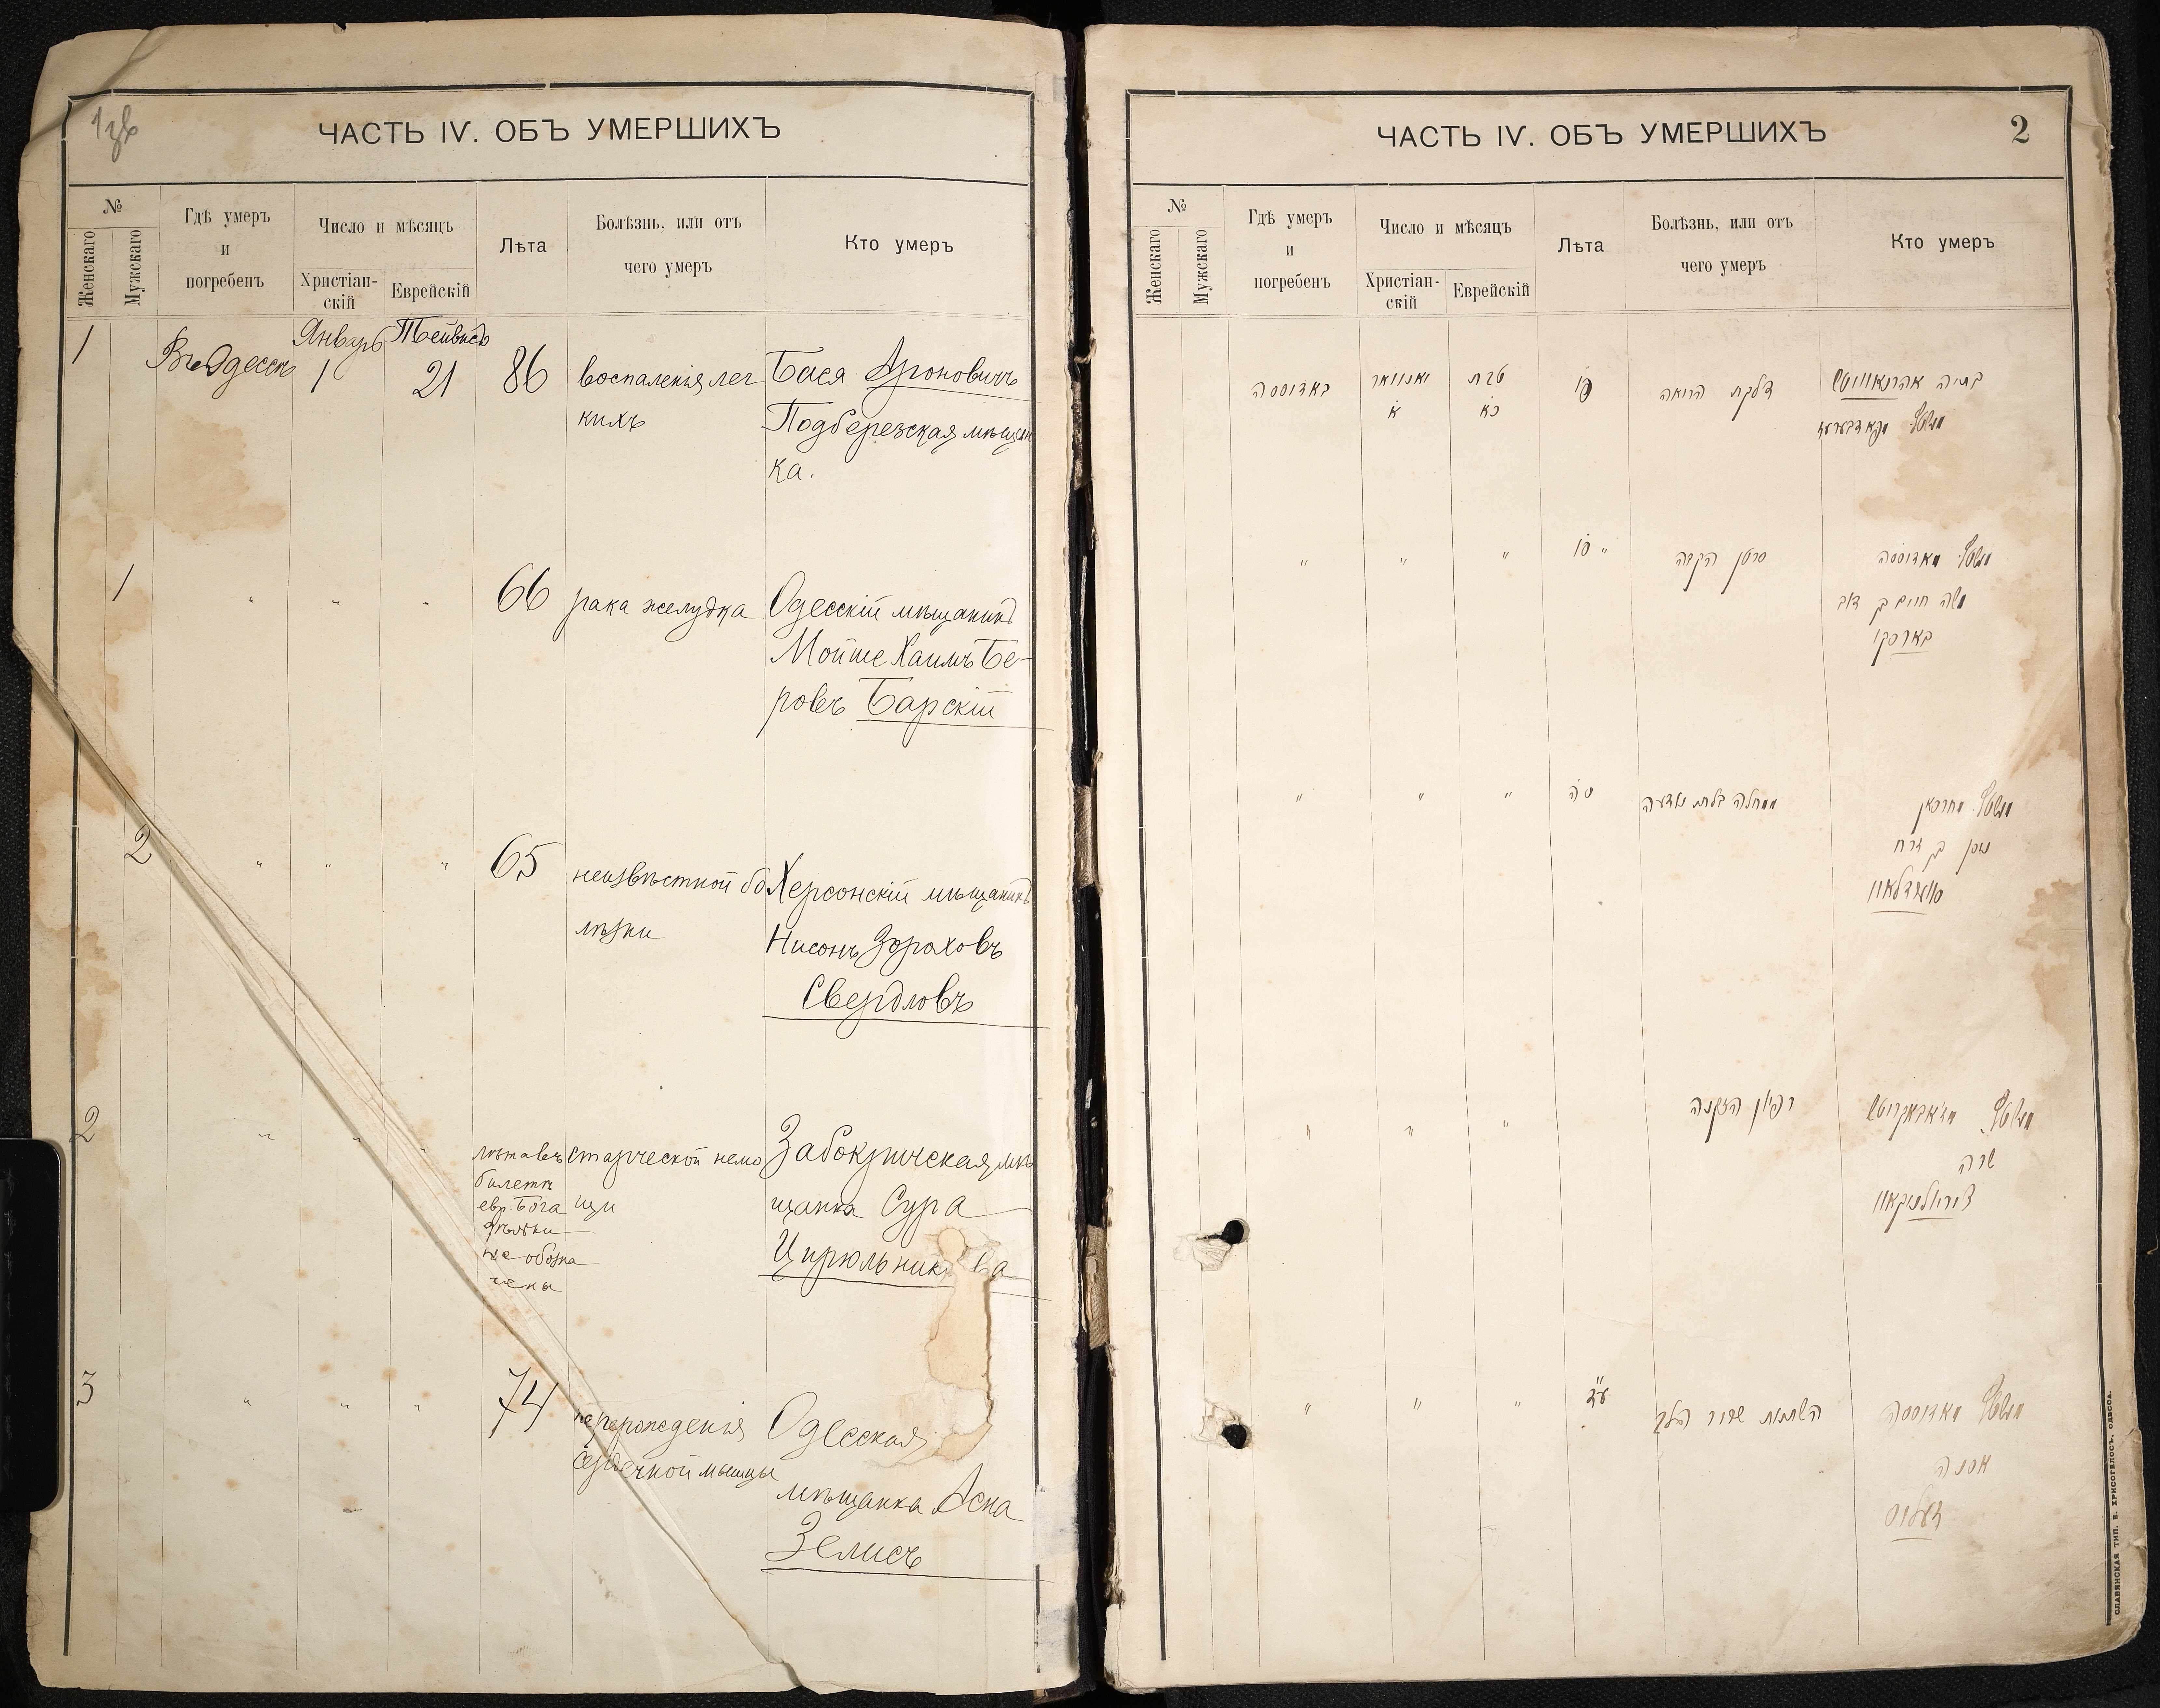 1зв
ЧАСТЬ IV. ОБЪ УМЕРШИХЪ
№
Женскаго
Мужскаго
Гдѣ умеръ
и
погребенъ
Число и мѣсяцъ
Христіан-
скій
Еврейскій
Лѣта
Болѣзнь, или отъ
чего умеръ
Кто умеръ
1
Въ Одессѣ
Январь
1
Тейвисъ
21
86
воспаленія лег
кихъ
Бася Ароновичъ
Подберезская мѣщан
ка.
1
" " "
66
рака желудка
Одесскій мѣщанинъ
Мойше Хаимъ Бе-
ровъ Барскій
2
" " "
65
неизвѣстной бо
лѣзни
Херсонскій мѣщанинъ
Нисонъ Зораховъ
Свердловъ
2
" " "
лѣта въ
билетѣ
евр. Бога
дѣльни
не обозна
чены
старческой немо
щи
Забокричская мѣ
щанка Сура
Цирюльникова
3
" " "
74
перерожденія
сердечной мышцы
Одесская
мѣщанка Асна
Зелисъ
ЧАСТЬ IV. ОБЪ УМЕРШИХЪ
2
№
Женскаго
Мужскаго
Гдѣ умеръ
и
погребенъ
Число и мѣсяцъ
Христіан-
скій
Еврейскій
Лѣта
Болѣзнь, или отъ
чего умеръ
Кто умеръ
באדוססה
יאנוואר
א
טבת
כא
דלקת הריאה
בתיה אהרנאוויטש
" " "
סרטן הקבה
מאדוססה
משה חיים בן דוב
בארסקי
" " "
סה
מחלה בלתי נודעה
מחרסאן
ניסן בן זרח
סווערדלאוו
" " "
רפיון הזקנה
שרה
" " "
עד
אסנה
זעליס
СЛАВЯНСКАЯ ТИП. Е. ХРИСОГЕЛОСЪ, ОДЕССА.